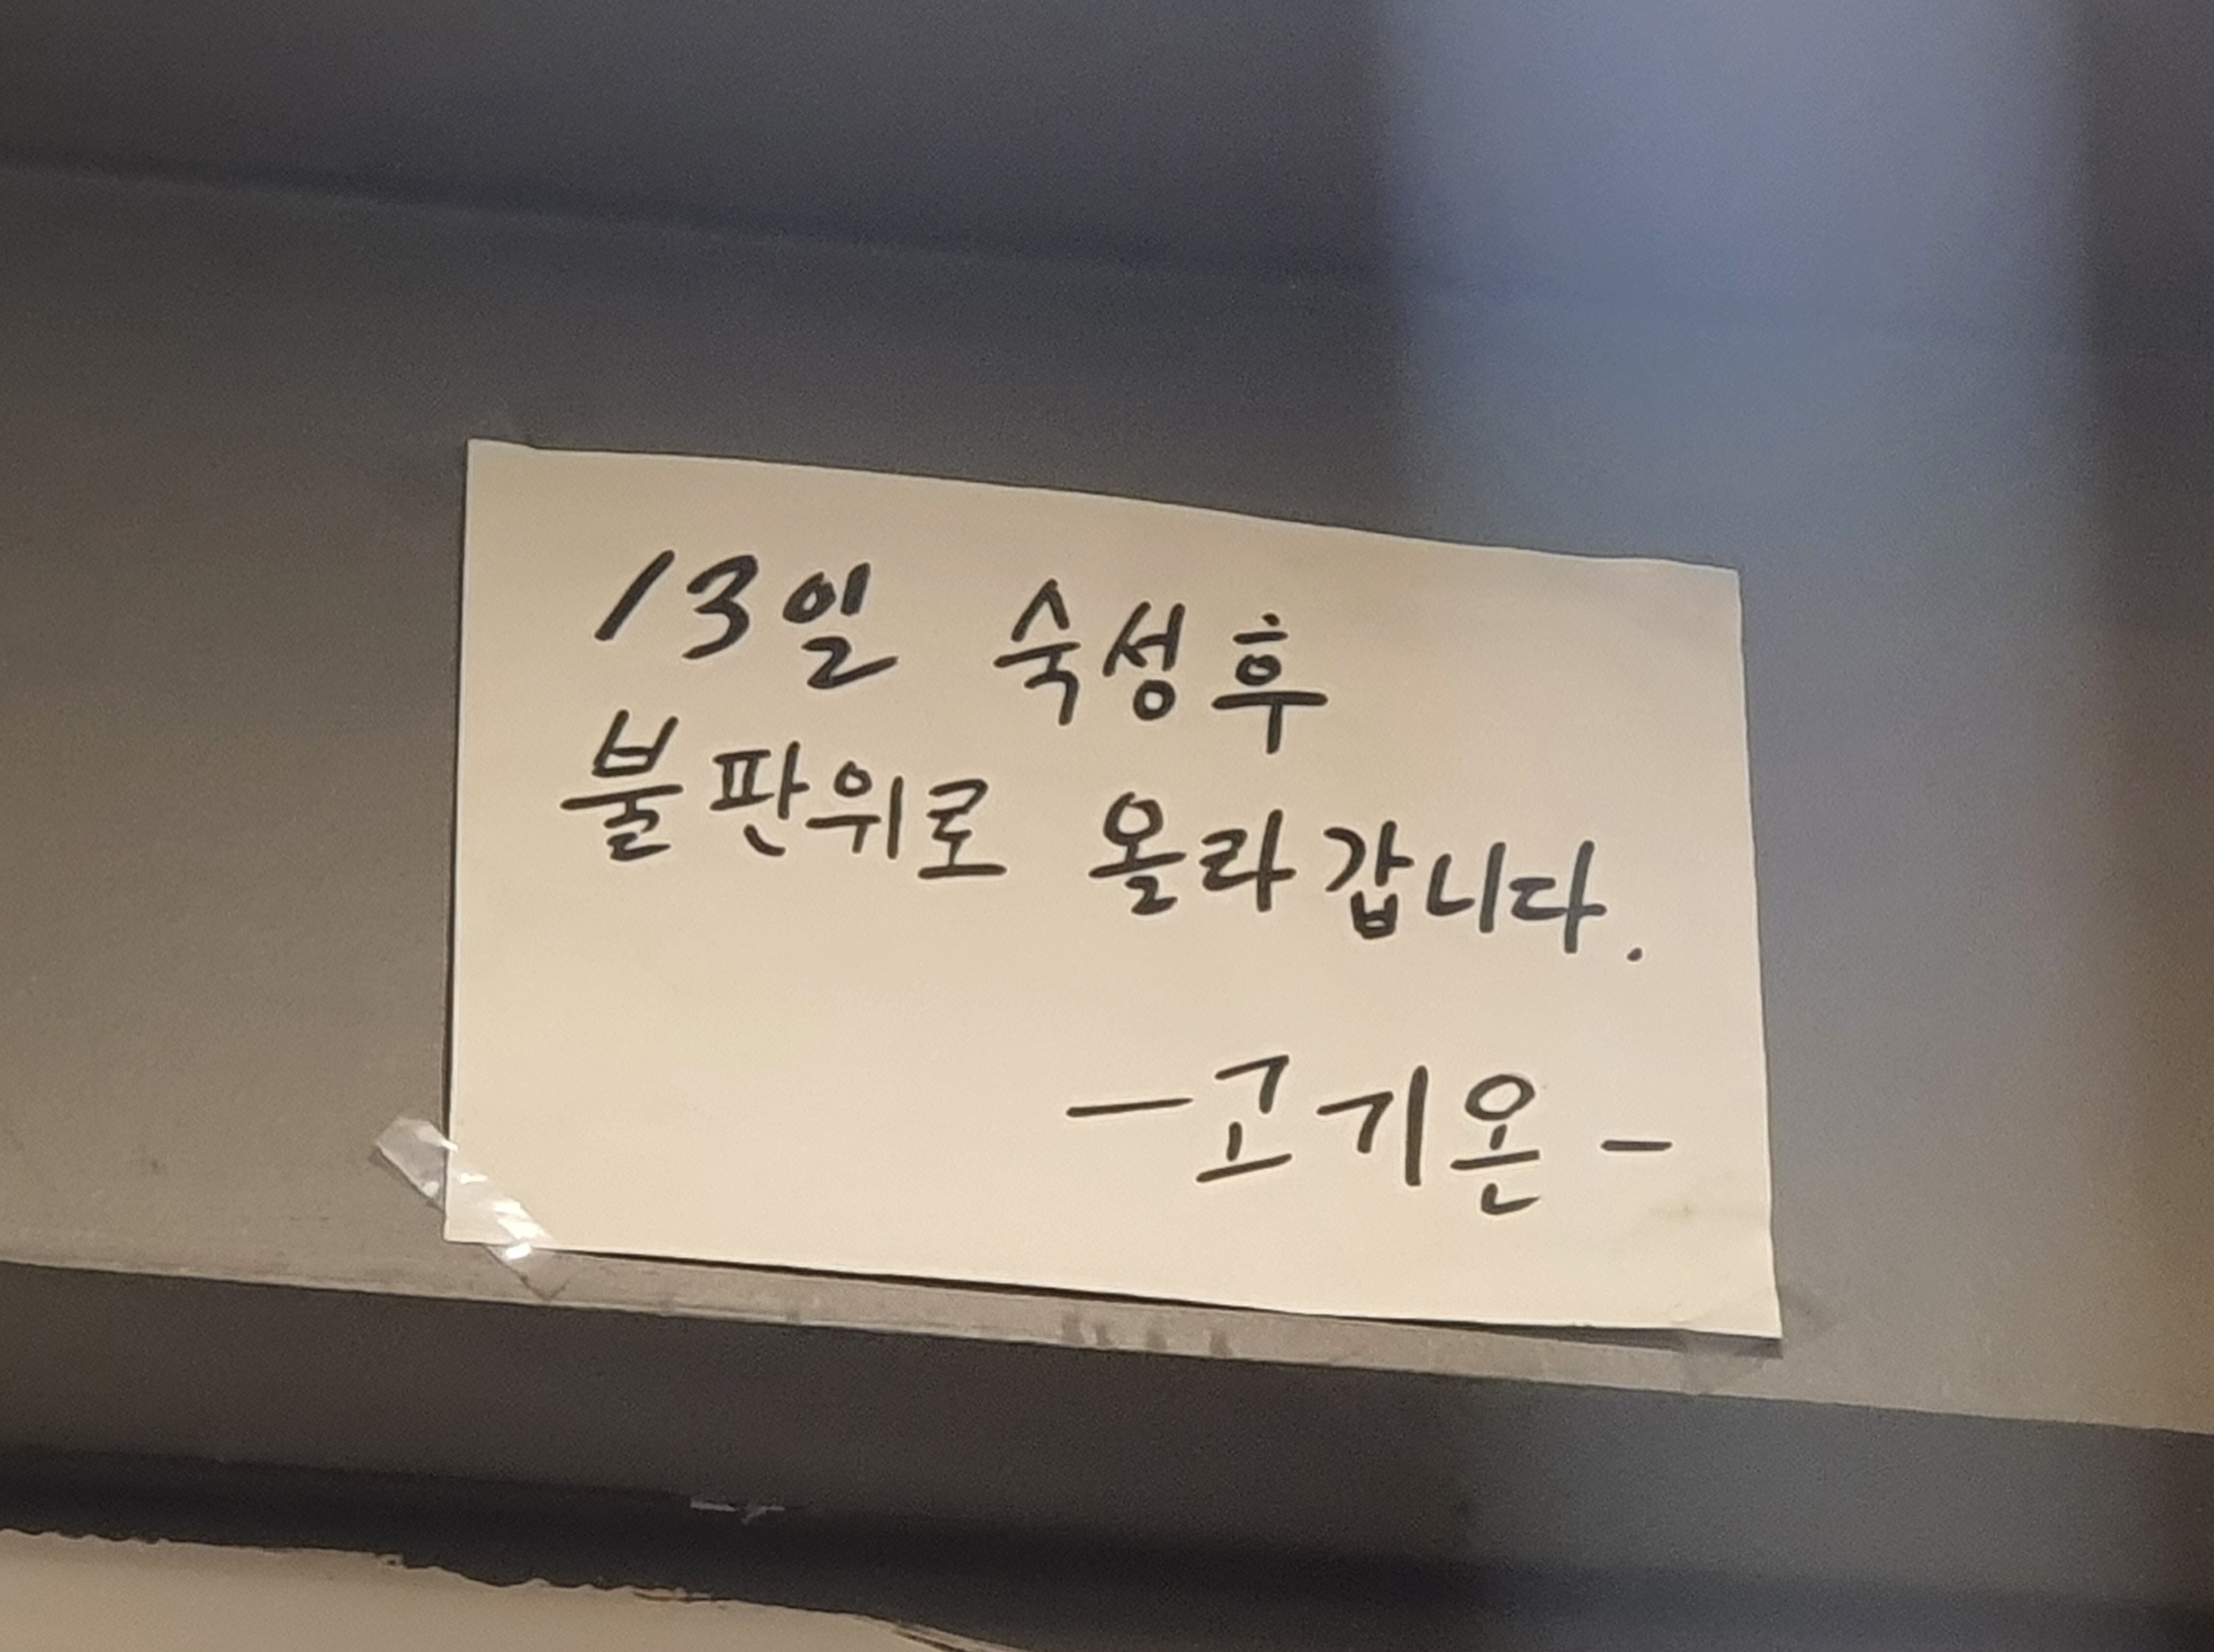 13일 숙성후
불판위로 올라갑니다.
-고기온-